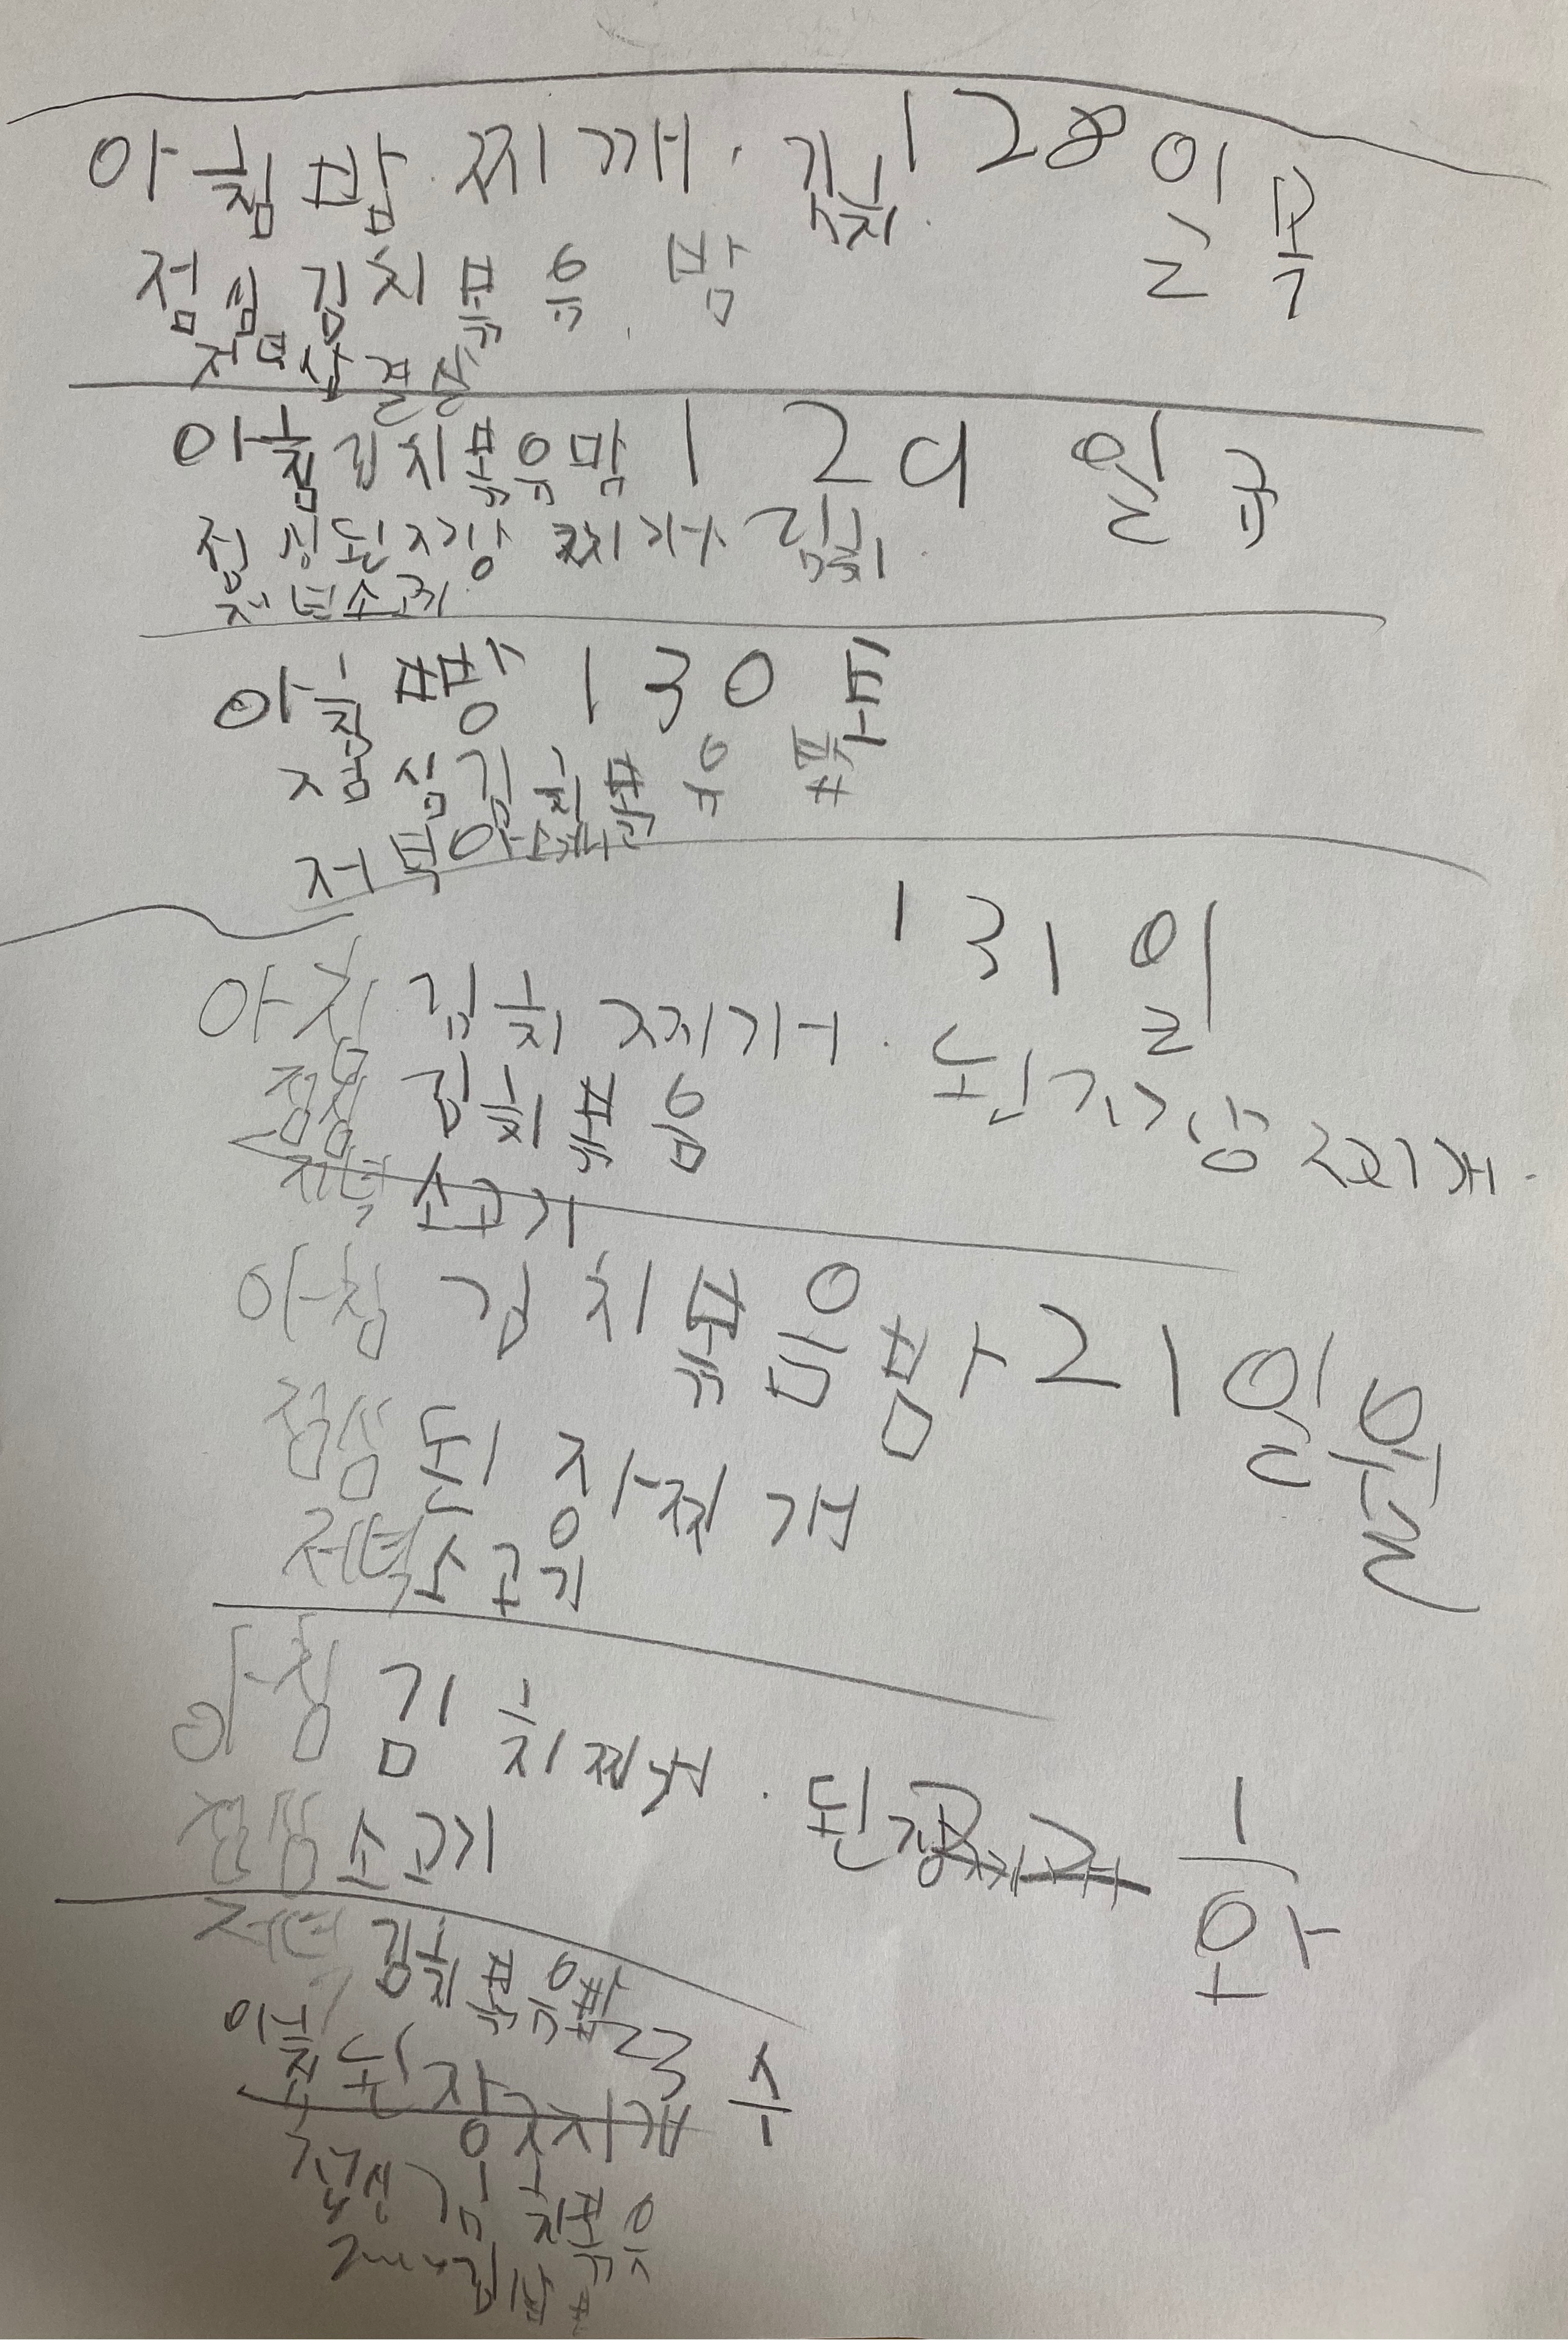 아침 밥. 찌깨. 김치. 1 28 일 목
점심 김치 볶유. 밤
저녁 삼결살
아침 김치 볶유밤 1 29 일 금
점심 된장 찌개 김치.
저녁 소고기.
아침 빵 1 30 토
점심 김치 볶유
저녁
1 31 일
아침 김치 찌개. 된장찌개.
점심 김치 볶음
저녁 소고기
아침 김치 볶음밤 2 1 일 월
점심 된장찌개
저녁 소고기
아침 김치 찌개. 된장
점심 소고기 화
저녁 김치 볶유밥
아침 된장찌개 3 수
점심 김치 볶유